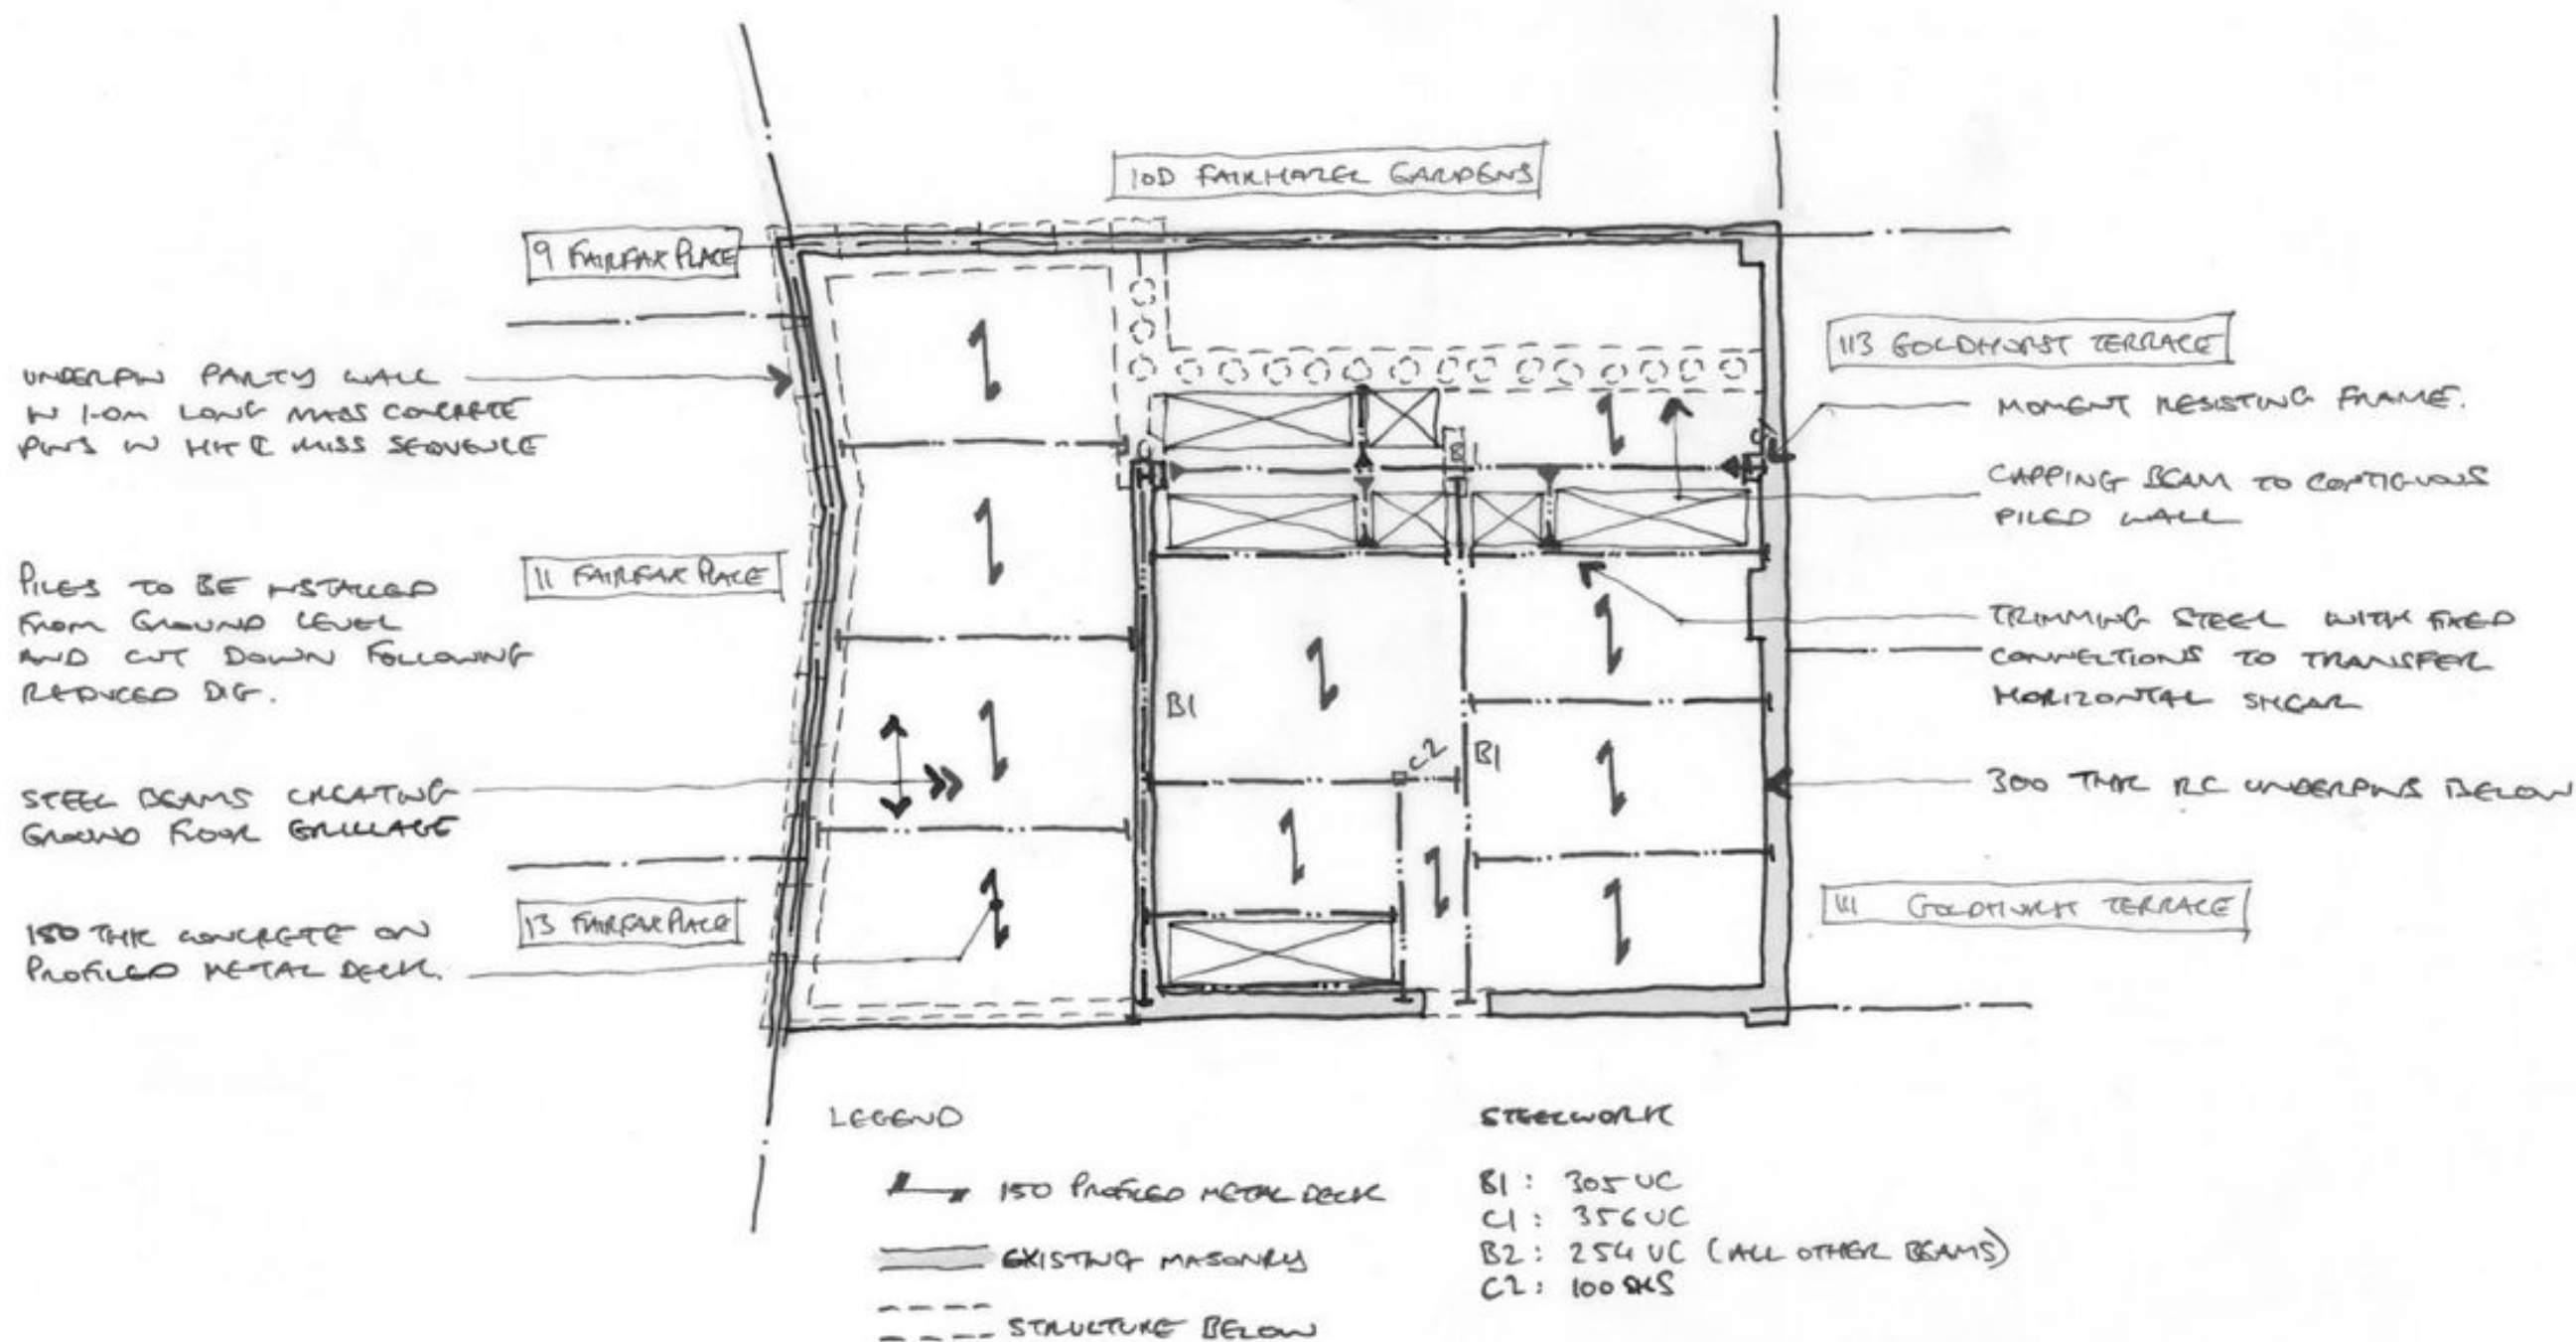 10D FAIRHAZEL GARDENS
9 FAIRFAX PLACE
113 GOLDHURST TERRACE
UNDERPIN PARTY WALL
IN 1.0m LONG MASS CONCRETE
PINS IN HIT & MISS SEQUENCE
MOMENT RESISTING FRAME.
CAPPING BEAM TO CONTIGUOUS
PILED WALL
PILES TO BE INSTALLED
FROM GROUND LEVEL
AND CUT DOWN FOLLOWING
REDUCED DIG.
11 FAIRFAX PLACE
TRIMMING STEEL WITH FIXED
CONNECTIONS TO TRANSFER
HORIZONTAL SHEAR
B1
C2
B1
STEEL BEAMS CREATING
GROUND FLOOR GRILLAGE
300 THK RC UNDERPINS BELOW
150 THK CONCRETE ON
PROFILED METAL DECK.
13 FAIRFAX PLACE
111 GOLDHURST TERRACE
LEGEND
150 PROFILED METAL DECK
EXISTING MASONRY
STRUCTURE BELOW
STEELWORK
B1 : 305 UC
C1 : 356 UC
B2 : 254 UC (ALL OTHER BEAMS)
C2 : 100 SHS